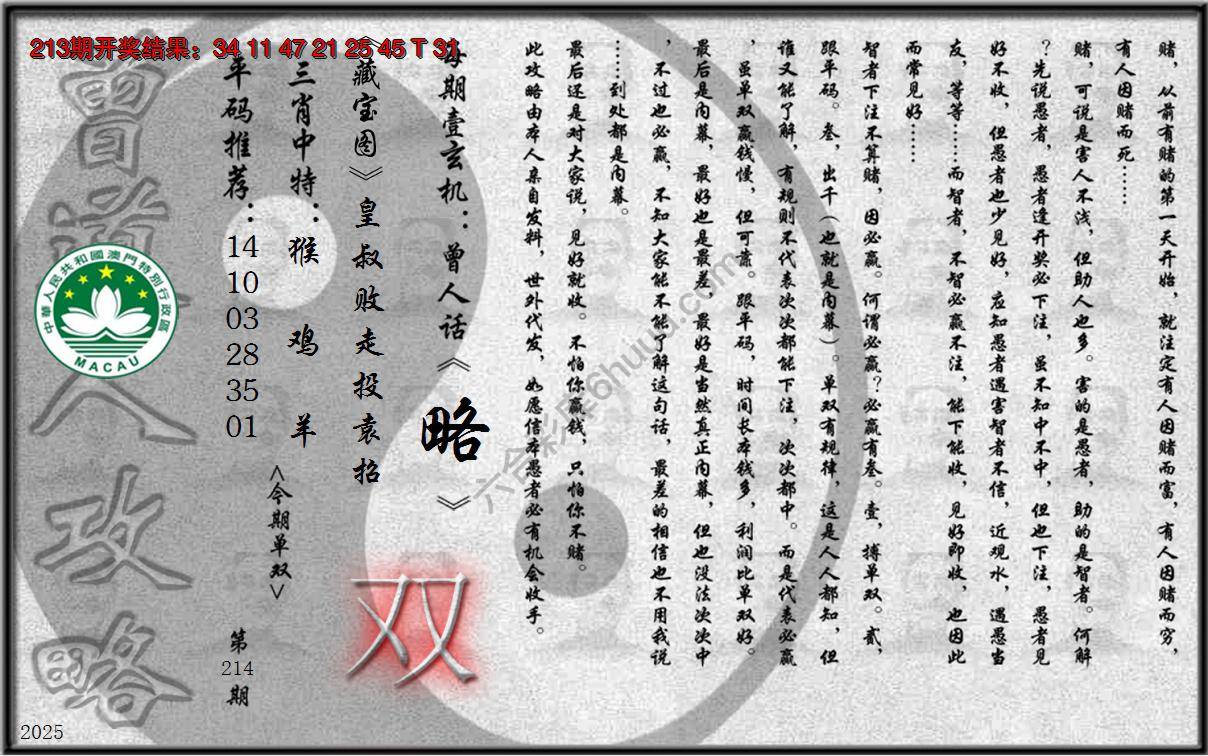 213期开奖结果：34 11 47 21 25 45 T 31
赌，从前有赌的第一天开始，就注定有人因赌而富，有人因赌而穷，
有人因赌而死……
赌，可说是害人不浅，但助人也多。害的是愚者，助的是智者。何解
？先说愚者，愚者逢开奖必下注，虽不知中不中，但也下注，愚者见
好不收，但愚者也少见好，应知愚者遇害智者不信，近观水，遇愚当
友，等等……而智者，不智必赢不注，能下能收，见好即收，也因此
而常见好……
智者下注不算赌，因必赢。何谓必赢？必赢有叁。壹，搏单双。贰，
跟平码。叁，出千（也就是内幕）。单双有规律，这是人人都知，但
谁又能了解，有规则不代表次次都能下注，次次都中。而是代表必赢
，虽单双赢钱慢，但可靠。跟平码，时间长本钱多，利润比单双好。
最后是内幕，最好也是最差，最好是当然真正内幕，但也没法次次中
，不过也必赢，不知大家能不能了解这句话，最差的相信也不用我说
……到处都是内幕。
最后还是对大家说，见好就收。不怕你赢钱，只怕你不赌。
此攻略由本人亲自发料，世外代发，如愿信本愚者必有机会收手。
每期壹玄机：曾人话《略》
《藏宝图》皇叔败走投袁招
双
三肖中特：猴 鸡 羊
<今期单双>
平码推荐：
14
10
03
28
35
01
第
214
期
曾道人攻略
中華人民共和國澳門特別行政區
MACAU
六合彩库6huuu.com
2025